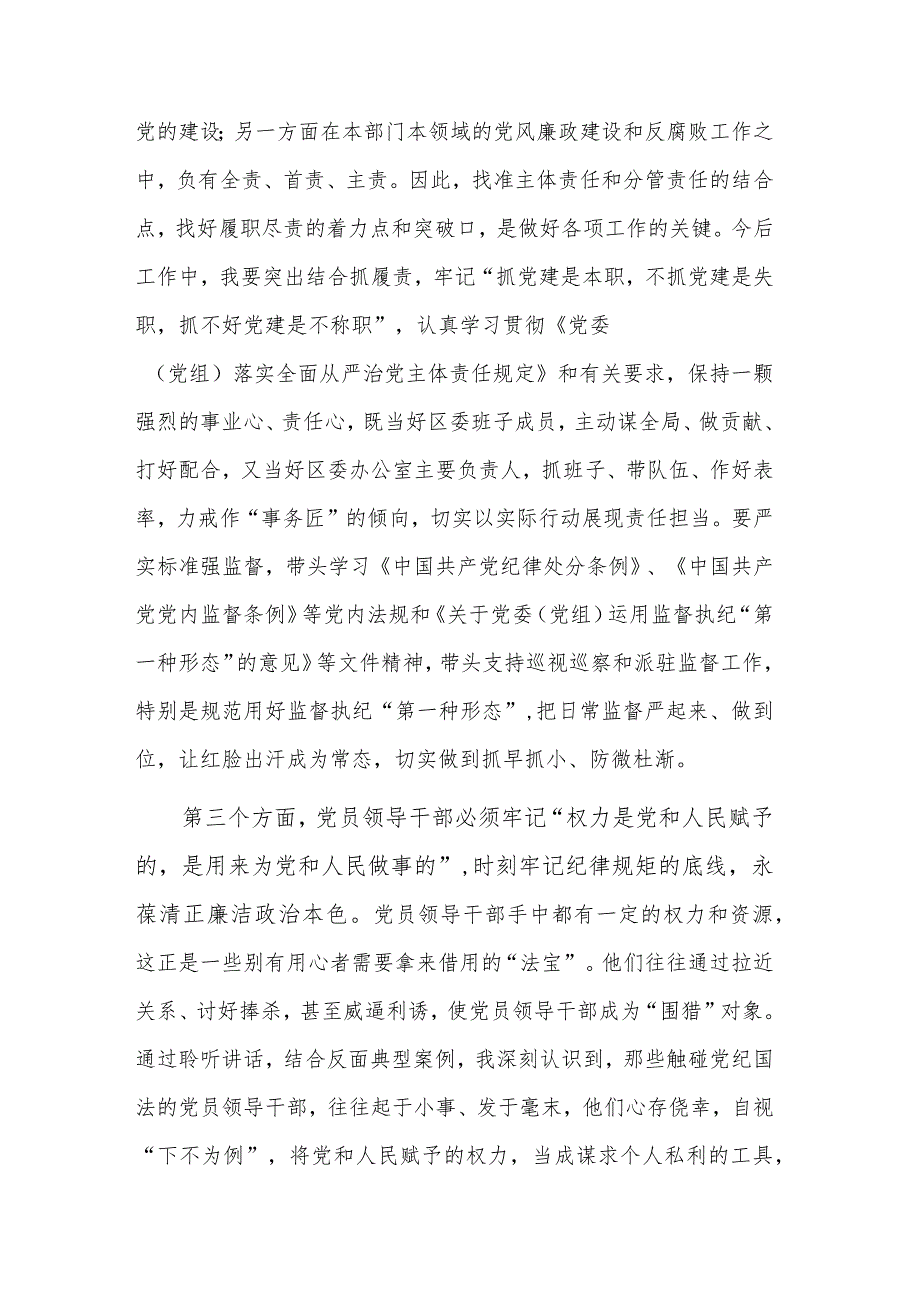 党的建设；另一方面在本部门本领域的党风廉政建设和反腐败工作之
中，负有全责、首责、主责。因此，找准主体责任和分管责任的结合
点，找好履职尽责的着力点和突破口，是做好各项工作的关键。今后
工作中，我要突出结合抓履责，牢记“抓党建是本职，不抓党建是失
职，抓不好党建是不称职”，认真学习贯彻《党委
（党组）落实全面从严治党主体责任规定》和有关要求，保持一颗
强烈的事业心、责任心，既当好区委班子成员，主动谋全局、做贡献、
打好配合，又当好区委办公室主要负责人，抓班子、带队伍、作好表
率，力戒作“事务匠”的倾向，切实以实际行动展现责任担当。要严
实标准强监督，带头学习《中国共产党纪律处分条例》、《中国共产
党党内监督条例》等党内法规和《关于党委（党组）运用监督执纪“第
一种形态”的意见》等文件精神，带头支持巡视巡察和派驻监督工作，
特别是规范用好监督执纪“第一种形态”,把日常监督严起来、做到
位，让红脸出汗成为常态，切实做到抓早抓小、防微杜渐。
第三个方面，党员领导干部必须牢记“权力是党和人民赋予
的，是用来为党和人民做事的”,时刻牢记纪律规矩的底线，永
葆清正廉洁政治本色。党员领导干部手中都有一定的权力和资源，
这正是一些别有用心者需要拿来借用的“法宝”。他们往往通过拉近
关系、讨好捧杀，甚至威逼利诱，使党员领导干部成为“围猎”对象。
通过聆听讲话，结合反面典型案例，我深刻认识到，那些触碰党纪国
法的党员领导干部，往往起于小事、发于毫末，他们心存侥幸，自视
“下不为例”，将党和人民赋予的权力，当成谋求个人私利的工具，